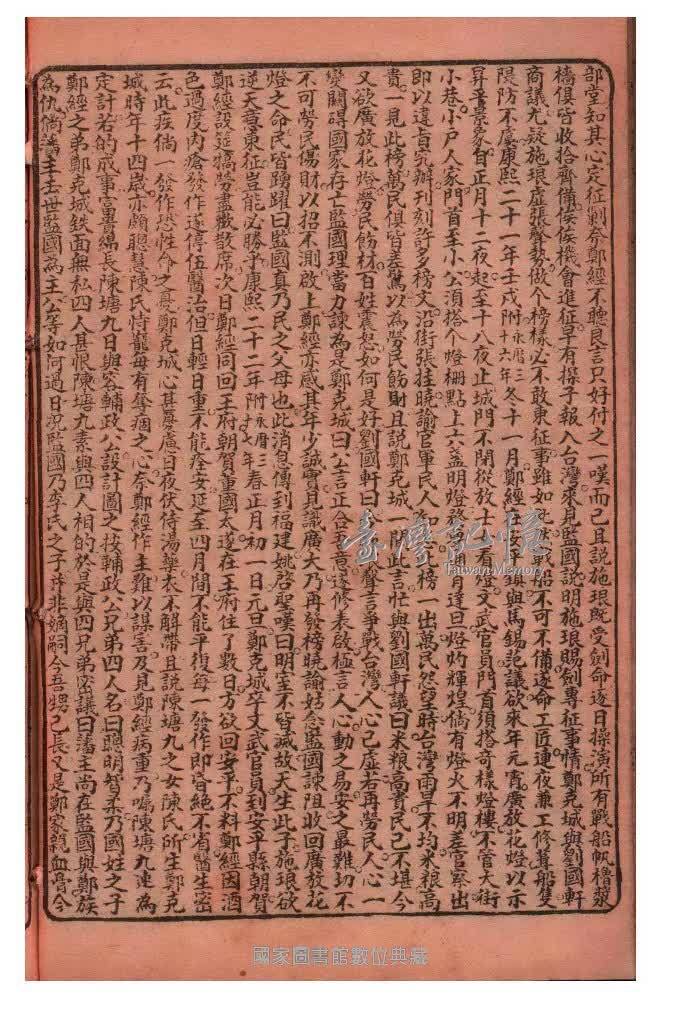 部堂知其心定征剿奈鄭經不聽良言只好付之一嘆而已且說施琅既受劍命逐日操演所有戰船帆櫓槳
檣俱皆收拾齊備俟候機會進征早有探子報入台灣來見監國說明施琅賜劍專征事情鄭克𡒉與劉國軒
商議尤疑施琅虛張聲勢做个榜樣必不敢東征事雖如此戰船不可不備遂命工匠連夜兼工修葺船隻
隄防不虞康熙二十一年壬戌附永曆三十六年冬十一月鄭經在安平鎮與馬錫范議欲來年元宵廣放花燈以示
昇平景象自正月十二夜起至十八夜止城門不閉從放士民看燈文武官員門首須搭奇樣燈樓不管大街
小巷小戶人家門首至小公須搭个燈棚點上六盞明燈
有達旦燈灼輝煌倘有燈火不明差官察出
即以違旨究辦刊刻許多榜文沿街張挂曉諭官軍民人
榜一出萬民怨望時台灣雨旱不均米粮高
貴一見此榜萬民俱皆差驚以為勞民餙財且說鄭克𡒉一聞此言忙與劉國軒議曰米粮高貴民已不堪今
又欲廣放花燈勞民餙材百姓震恕如何是好劉國軒曰
聲言爭戰台灣人心已虛若再勞民人心一
變關碍國家存亡監國理當力諫為是鄭克𡒉曰公言正合吾意遂修表啟極言人心動之易安之最難切不
不可勞民傷財以招不測啟上鄭經亦感其年少誠實見識廣大乃再發榜曉諭姑念監國諫阻收回廣放花
燈之命民皆踴躍曰監國真乃民之父母也此消息傳到福建姚啓聖嘆曰明室不皆滅故天生此子施琅欲
逆天意東征豈能必勝乎康熙二十二年附永曆三十七年春正月初一日元旦鄭克𡒉卒文武官員到安平縣朝賀
鄭經設筵犒勞盡歡散席次日鄭經同回王府朝賀董國太遂在王府住了數日方欲回安平不料鄭經因酒
色過度內瘡發作遂停伍醫治但日輕日重不能痊安延至四月間不能平復每一發作即昏絕不省醫生密
云此疾倘一發作恐性命之憂鄭克𡒉心甚憂慮日夜伏侍湯藥衣不解帶且說陳塘九之女陳氏所生鄭克
塽時年十四歲亦頗聰慧陳氏恃寵每有奪嫡之心奈鄭經作主難以謀害及見鄭經病重乃囑陳塘九速為
定計若的成事富貴綿長陳塘九日與眾輔政公設計圖之按輔政公兄弟四人名曰聰明智柔乃國姓之子
鄭經之弟鄭克𡒉鉄面無私四人甚恨陳塘九素與四人相的於是與四兄弟密議曰藩主尚在監國與鄭族
為仇倘藩主去世監國為王公等如何過日况監國乃李氏之子並非嫡嗣今吾甥已長又是鄭家親血骨今
臺灣記憶
Taiwan Memory
國家圖書館數位典藏